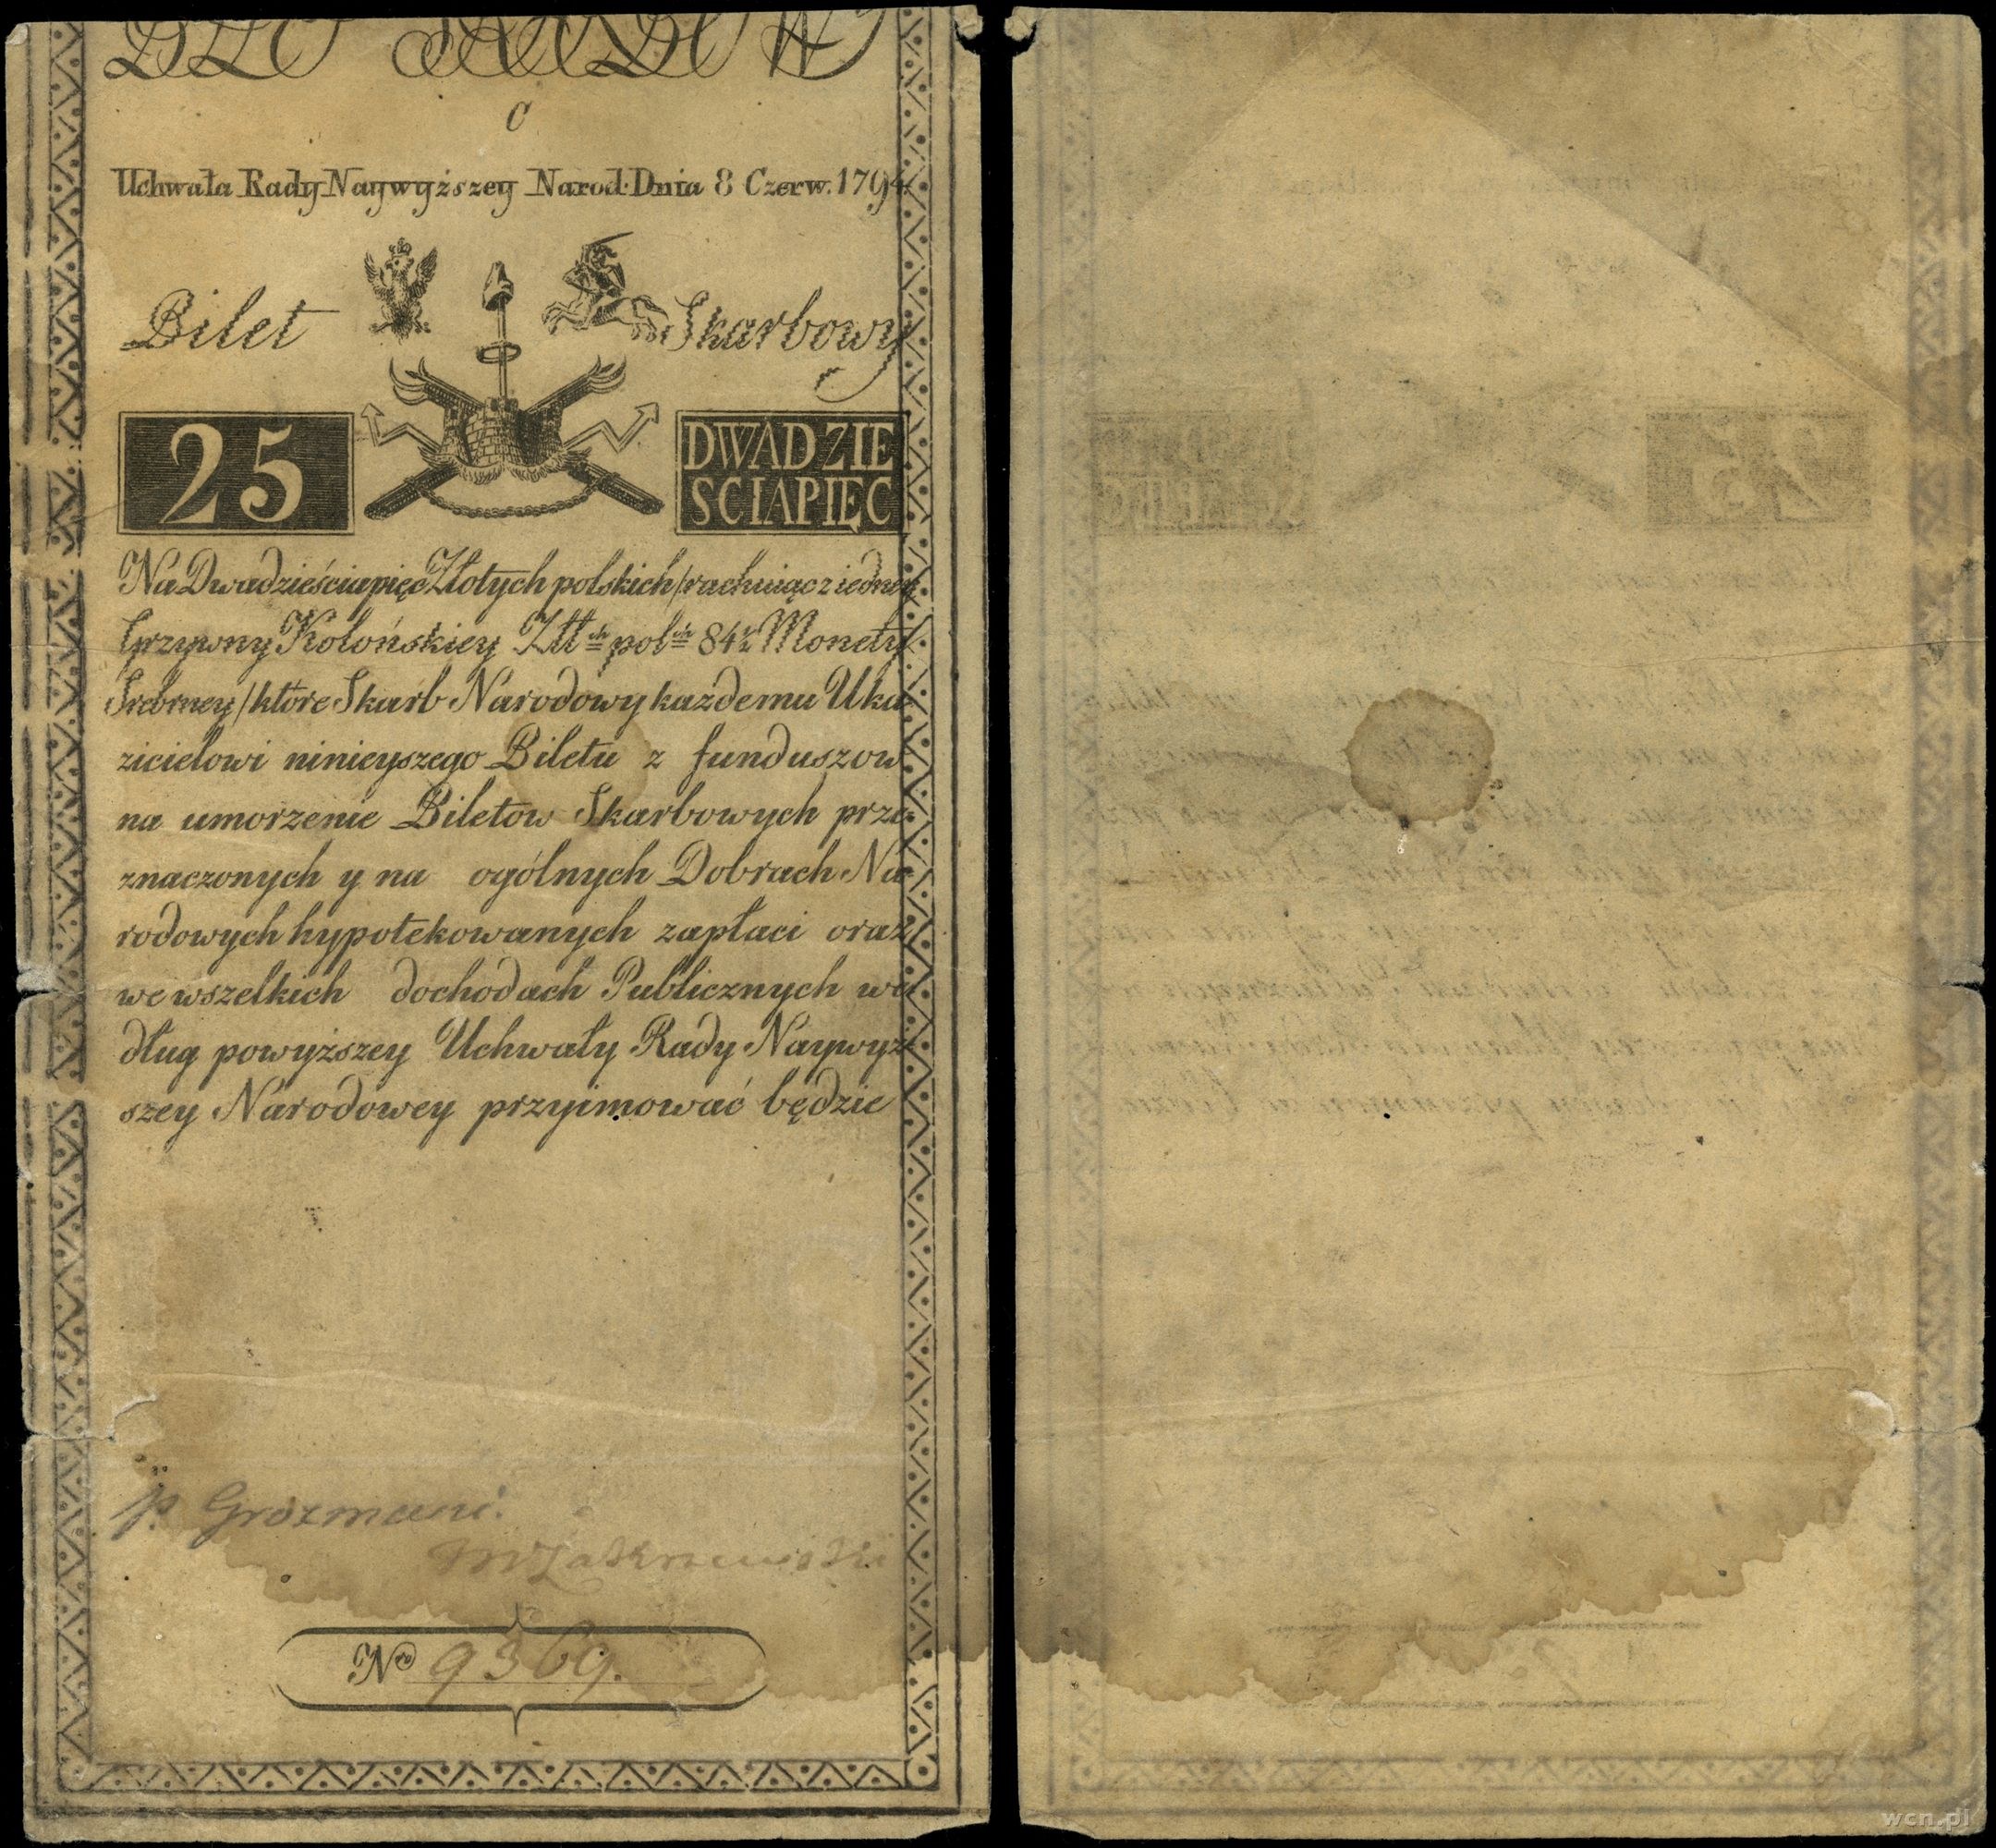 C
Uchwała Rady Naywyższey Narod: Dnia 8 Czerw. 1794
Bilet Skarbowy
25
DWADZIE
SCIAPIĘC
Na Dwadzieściapięć Złotych polskich /rachuiąc z iedney
Grzywny Kolońskiey Złł ch pol ch 84½ Monety
Srebrney/ które Skarb Narodowy każdemu Uka
zicielowi ninieyszego Biletu z funduszow
na umorzenie Biletow Skarbowych prze
znaczonych y na ogólnych Dobrach Na
rodowych hypotekowanych zapłaci oraz
we wszelkich dochodach Publicznych we
dług powyższey Uchwały Rady Naywyż
szey Narodowey przyimować będzie
p. Grozmani.
Nro 9369.
wcn.pl